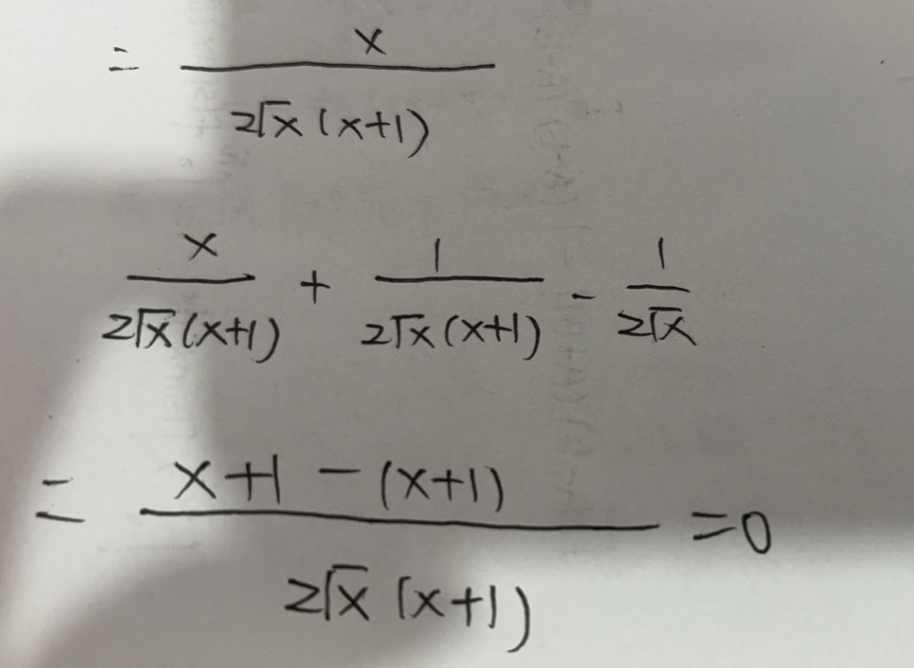 = x / 2√x (x+1)
x / 2√x (x+1) + 1 / 2√x (x+1) - 1 / 2√x
= x+1 - (x+1) / 2√x (x+1) = 0